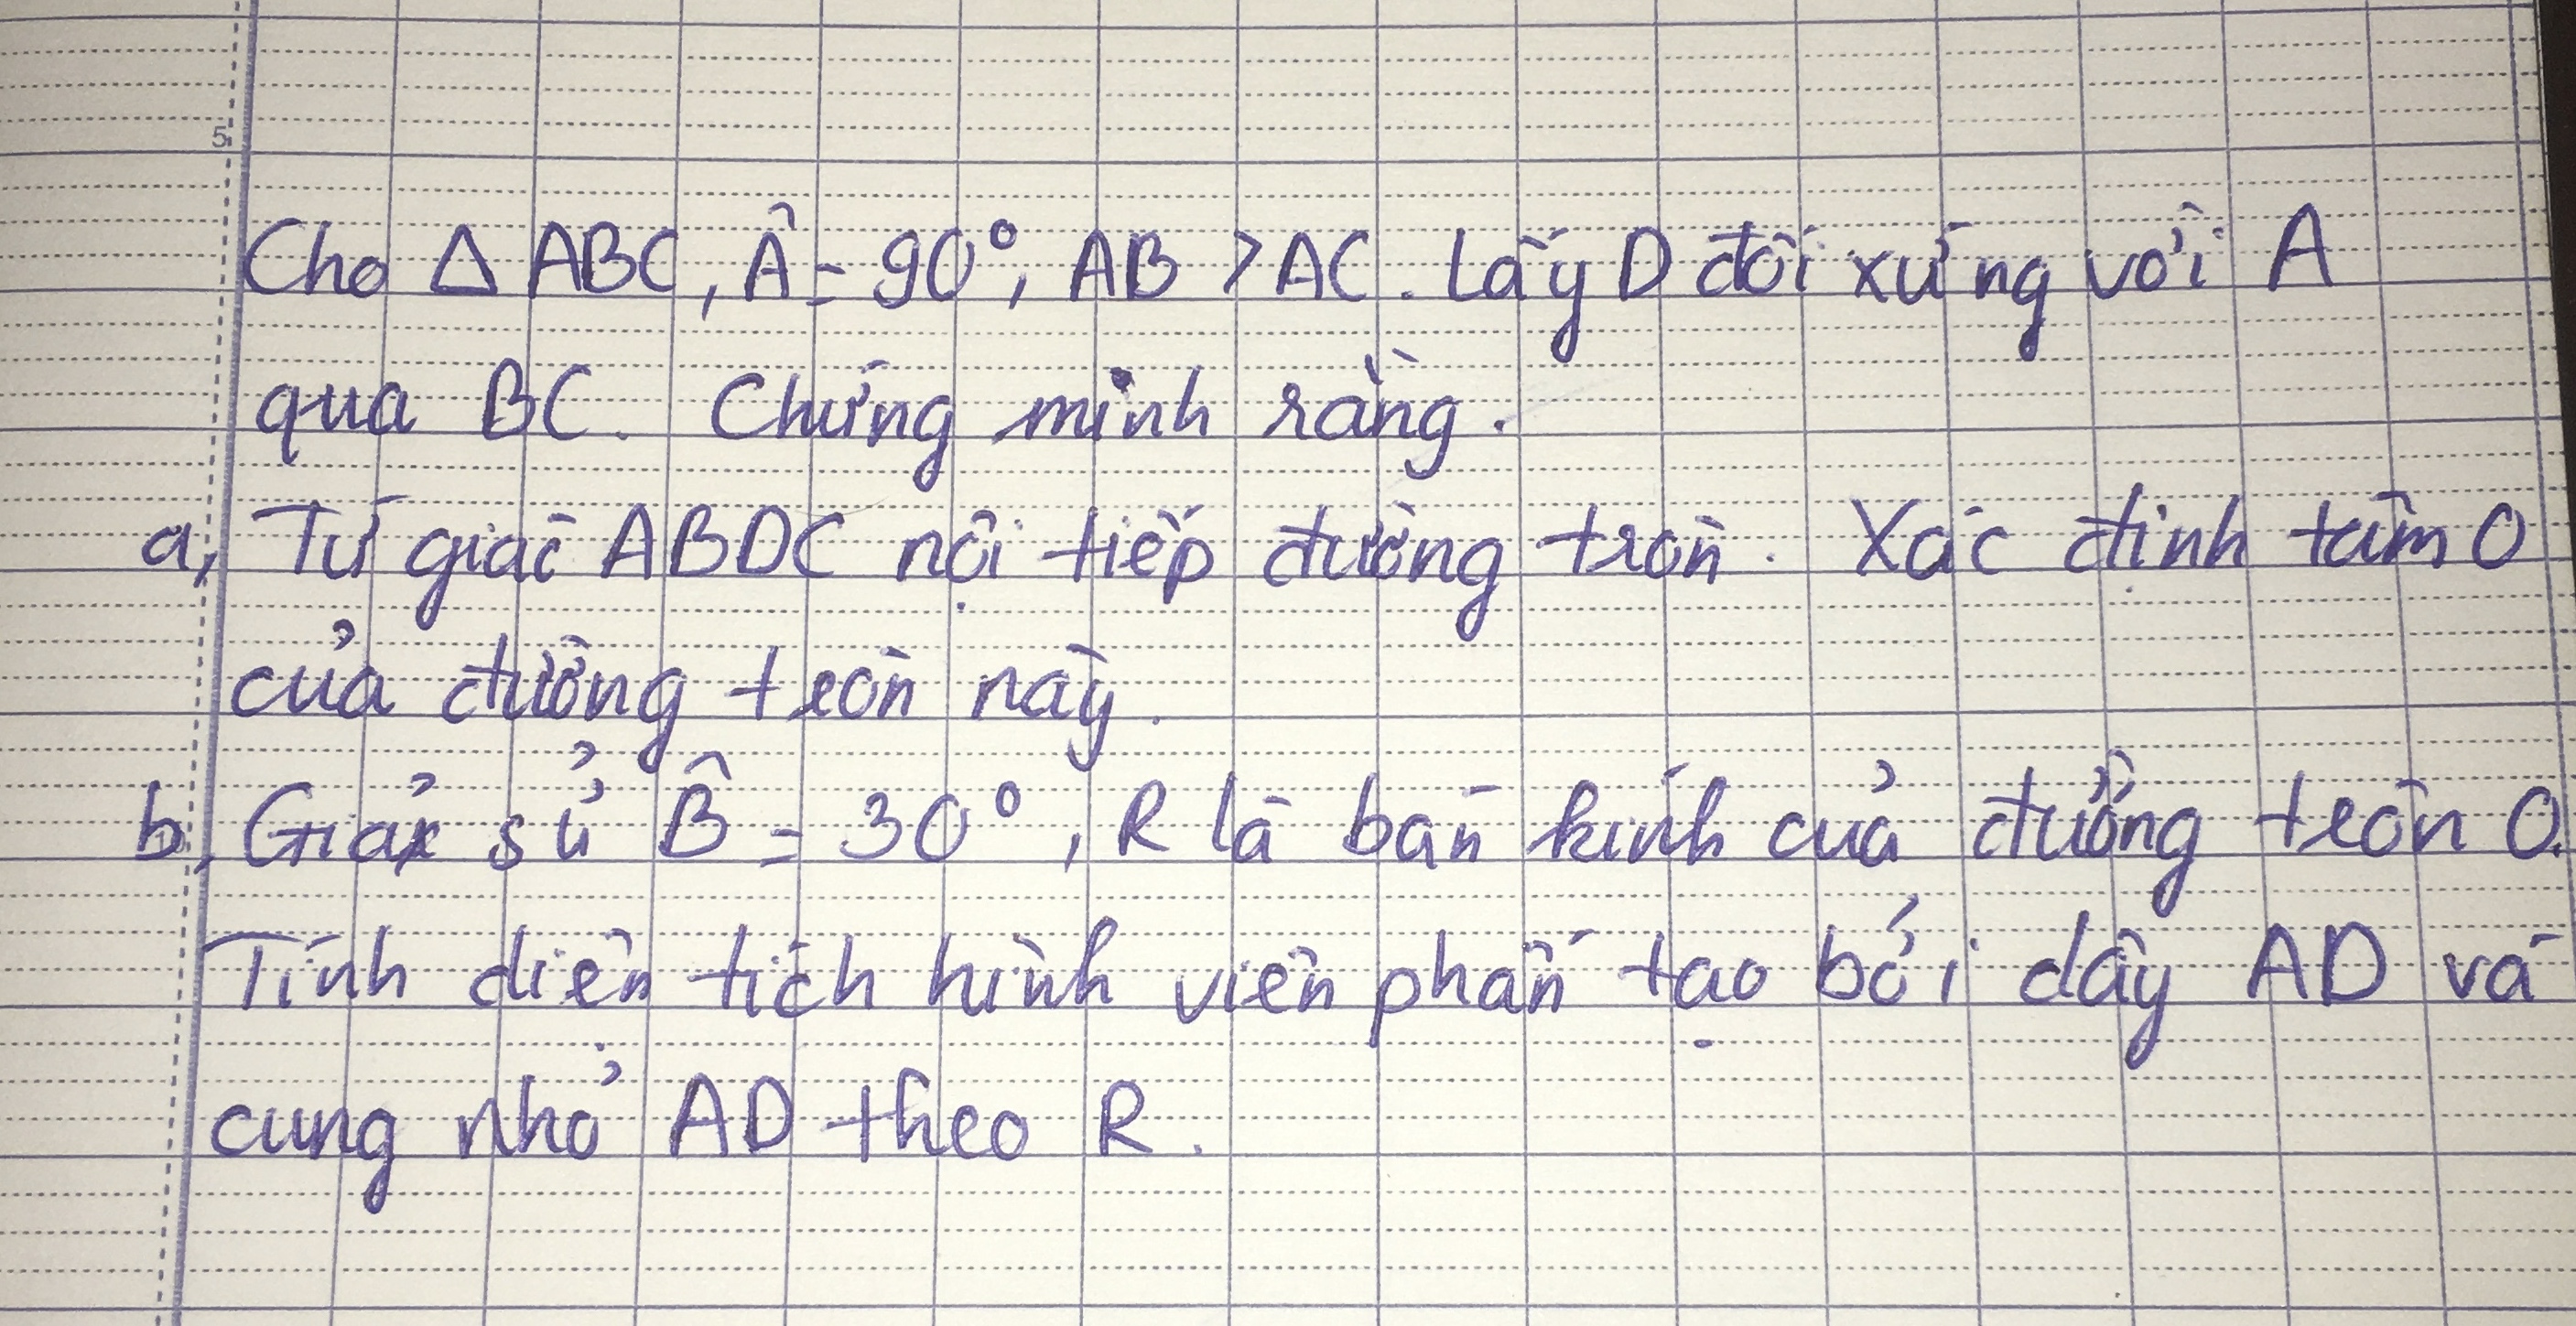 5
Cho Δ ABC, Â = 90°, AB > AC. Lấy D đối xứng với A
qua BC. Chứng minh rằng.
a, Tứ giác ABDC nội tiếp đường tròn. Xác định tâm O
của đường tròn này.
b, Giả sử B̂ = 30°, R là bán kính của đường tròn O.
Tính diện tích hình viên phấn tạo bởi dây AD và
cung nhỏ AD theo R.